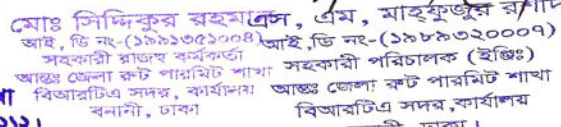 মোঃ সিদ্দিকুর রহমান
আই, ডি নং-(১৯৯১৩৫১০০৪)
সহকারী রাজস্ব কর্মকর্তা
আন্তঃ জেলা রুট পারমিট শাখা
বিআরটিএ সদর, কার্যালয়
বনানী, ঢাকা
এস, এম, মাহফুজুর রহমান
আই, ডি নং-(১৯৮৯৩২০০০৭)
সহকারী পরিচালক (ইঞ্জিঃ)
আন্তঃ জেলা রুট পারমিট শাখা
বিআরটিএ সদর, কার্যালয়
ঢাকা।